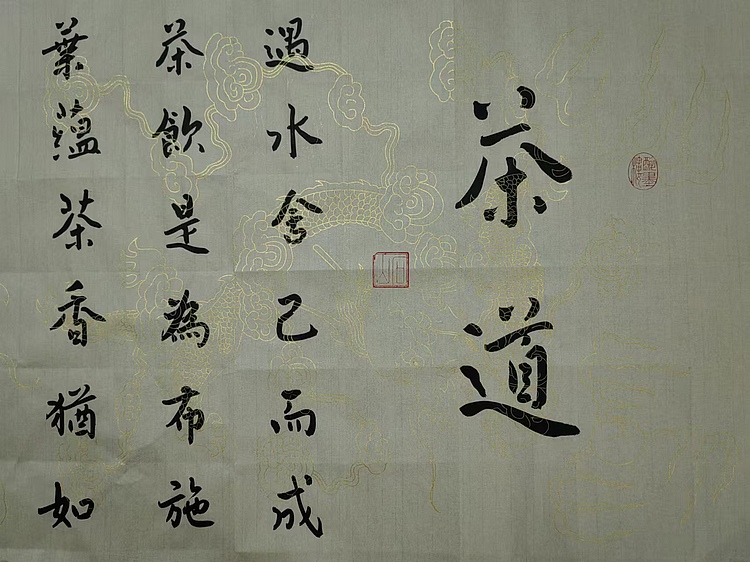 茶道
遇水舍己而成
茶飲是為布施
葉蘊茶香猶如